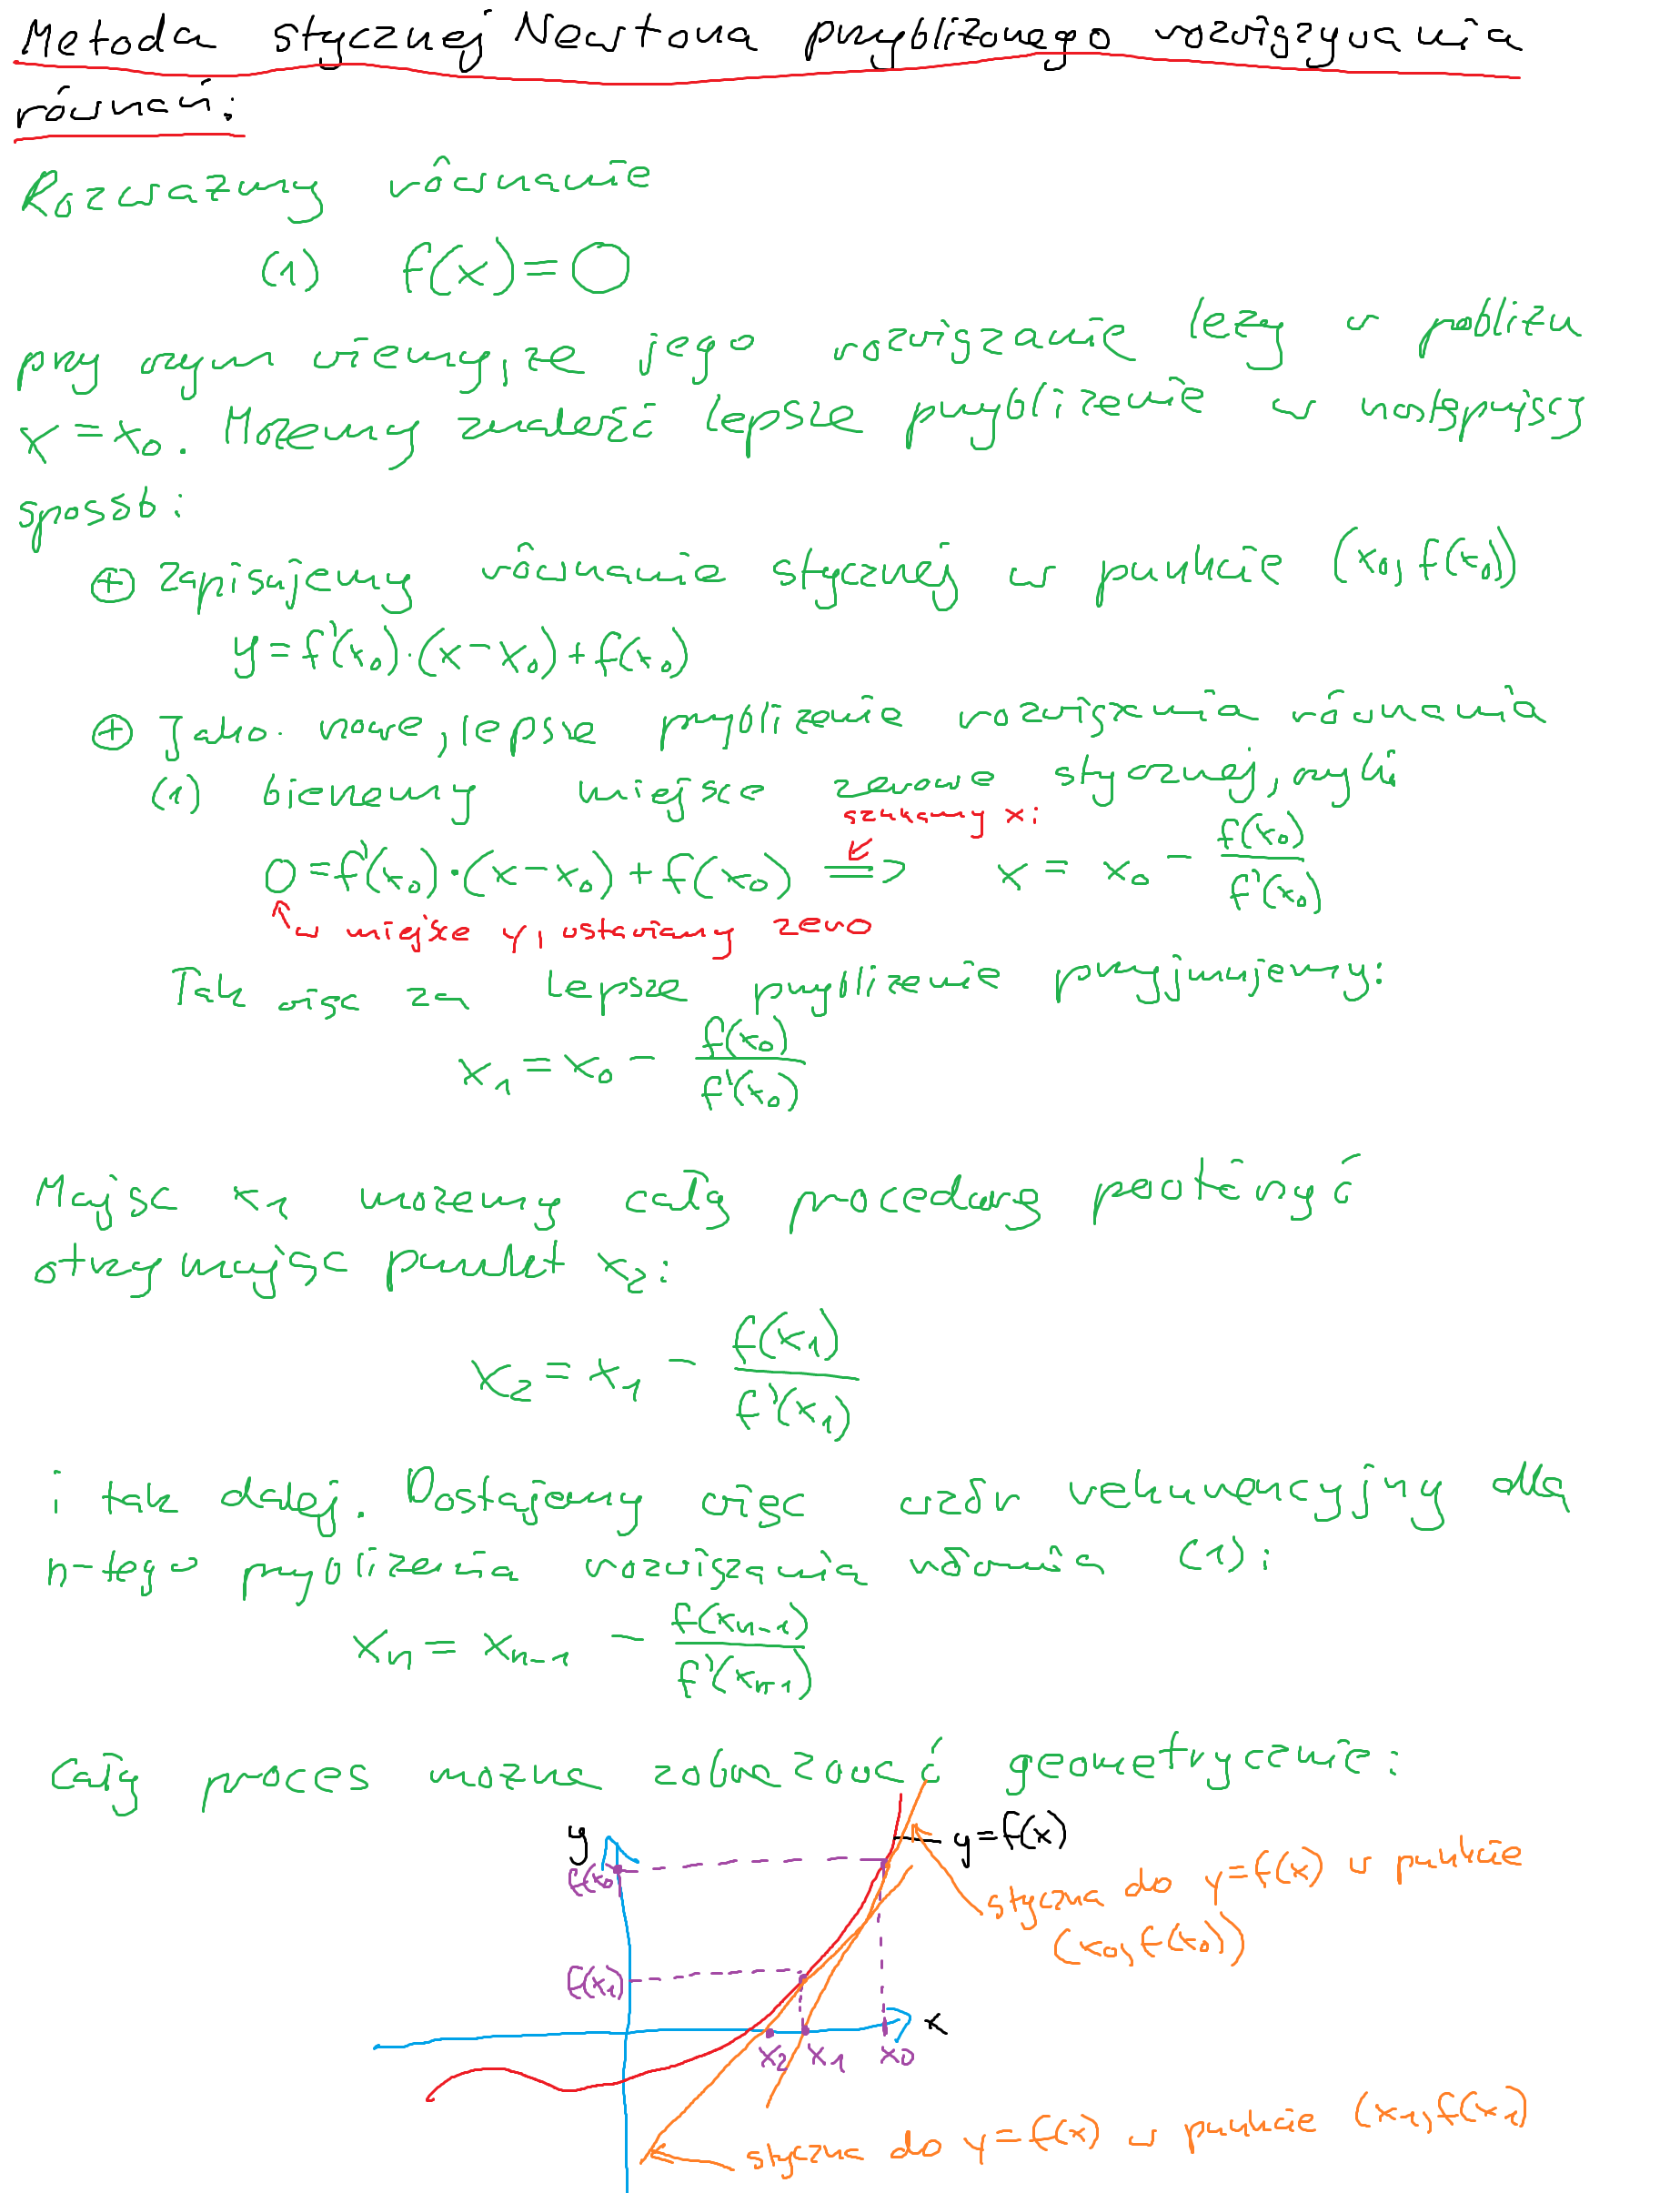 Metoda stycznej Newtona przybliżonego rozwiązywania
równań:
Rozważmy równanie
(1) f(x)=0
przy czym wiemy, że jego rozwiązanie leży w pobliżu
x=x₀. Możemy znaleźć lepsze przybliżenie w następujący
sposób:
⊕ Zapisujemy równanie stycznej w punkcie (x₀, f(x₀))
y=f'(x₀)·(x-x₀)+f(x₀)
⊕ Jako nowe, lepsze przybliżenie rozwiązania równania
(1) bierzemy miejsce zerowe stycznej, czyli
szukamy x:
0=f'(x₀)·(x-x₀)+f(x₀) ⟹ x = x₀ - f(x₀)/f'(x₀)
w miejsce y, wstawiamy zero
Tak więc za lepsze przybliżenie przyjmujemy:
x₁=x₀ - f(x₀)/f'(x₀)
Mając x₁ możemy całą procedurę powtórzyć
otrzymając punkt x₂:
x₂=x₁ - f(x₁)/f'(x₁)
i tak dalej. Dostajemy więc wzór rekurencyjny dla
n-tego przybliżenia rozwiązania (1):
xₙ = xₙ₋₁ - f(xₙ₋₁)/f'(xₙ₋₁)
Cały proces można zobrazować geometrycznie:
y
y=f(x)
f(x₀)
styczna do y=f(x) w punkcie
(x₀, f(x₀))
f(x₁)
x
x₂ x₁ x₀
styczna do y=f(x) w punkcie (x₁, f(x₁)